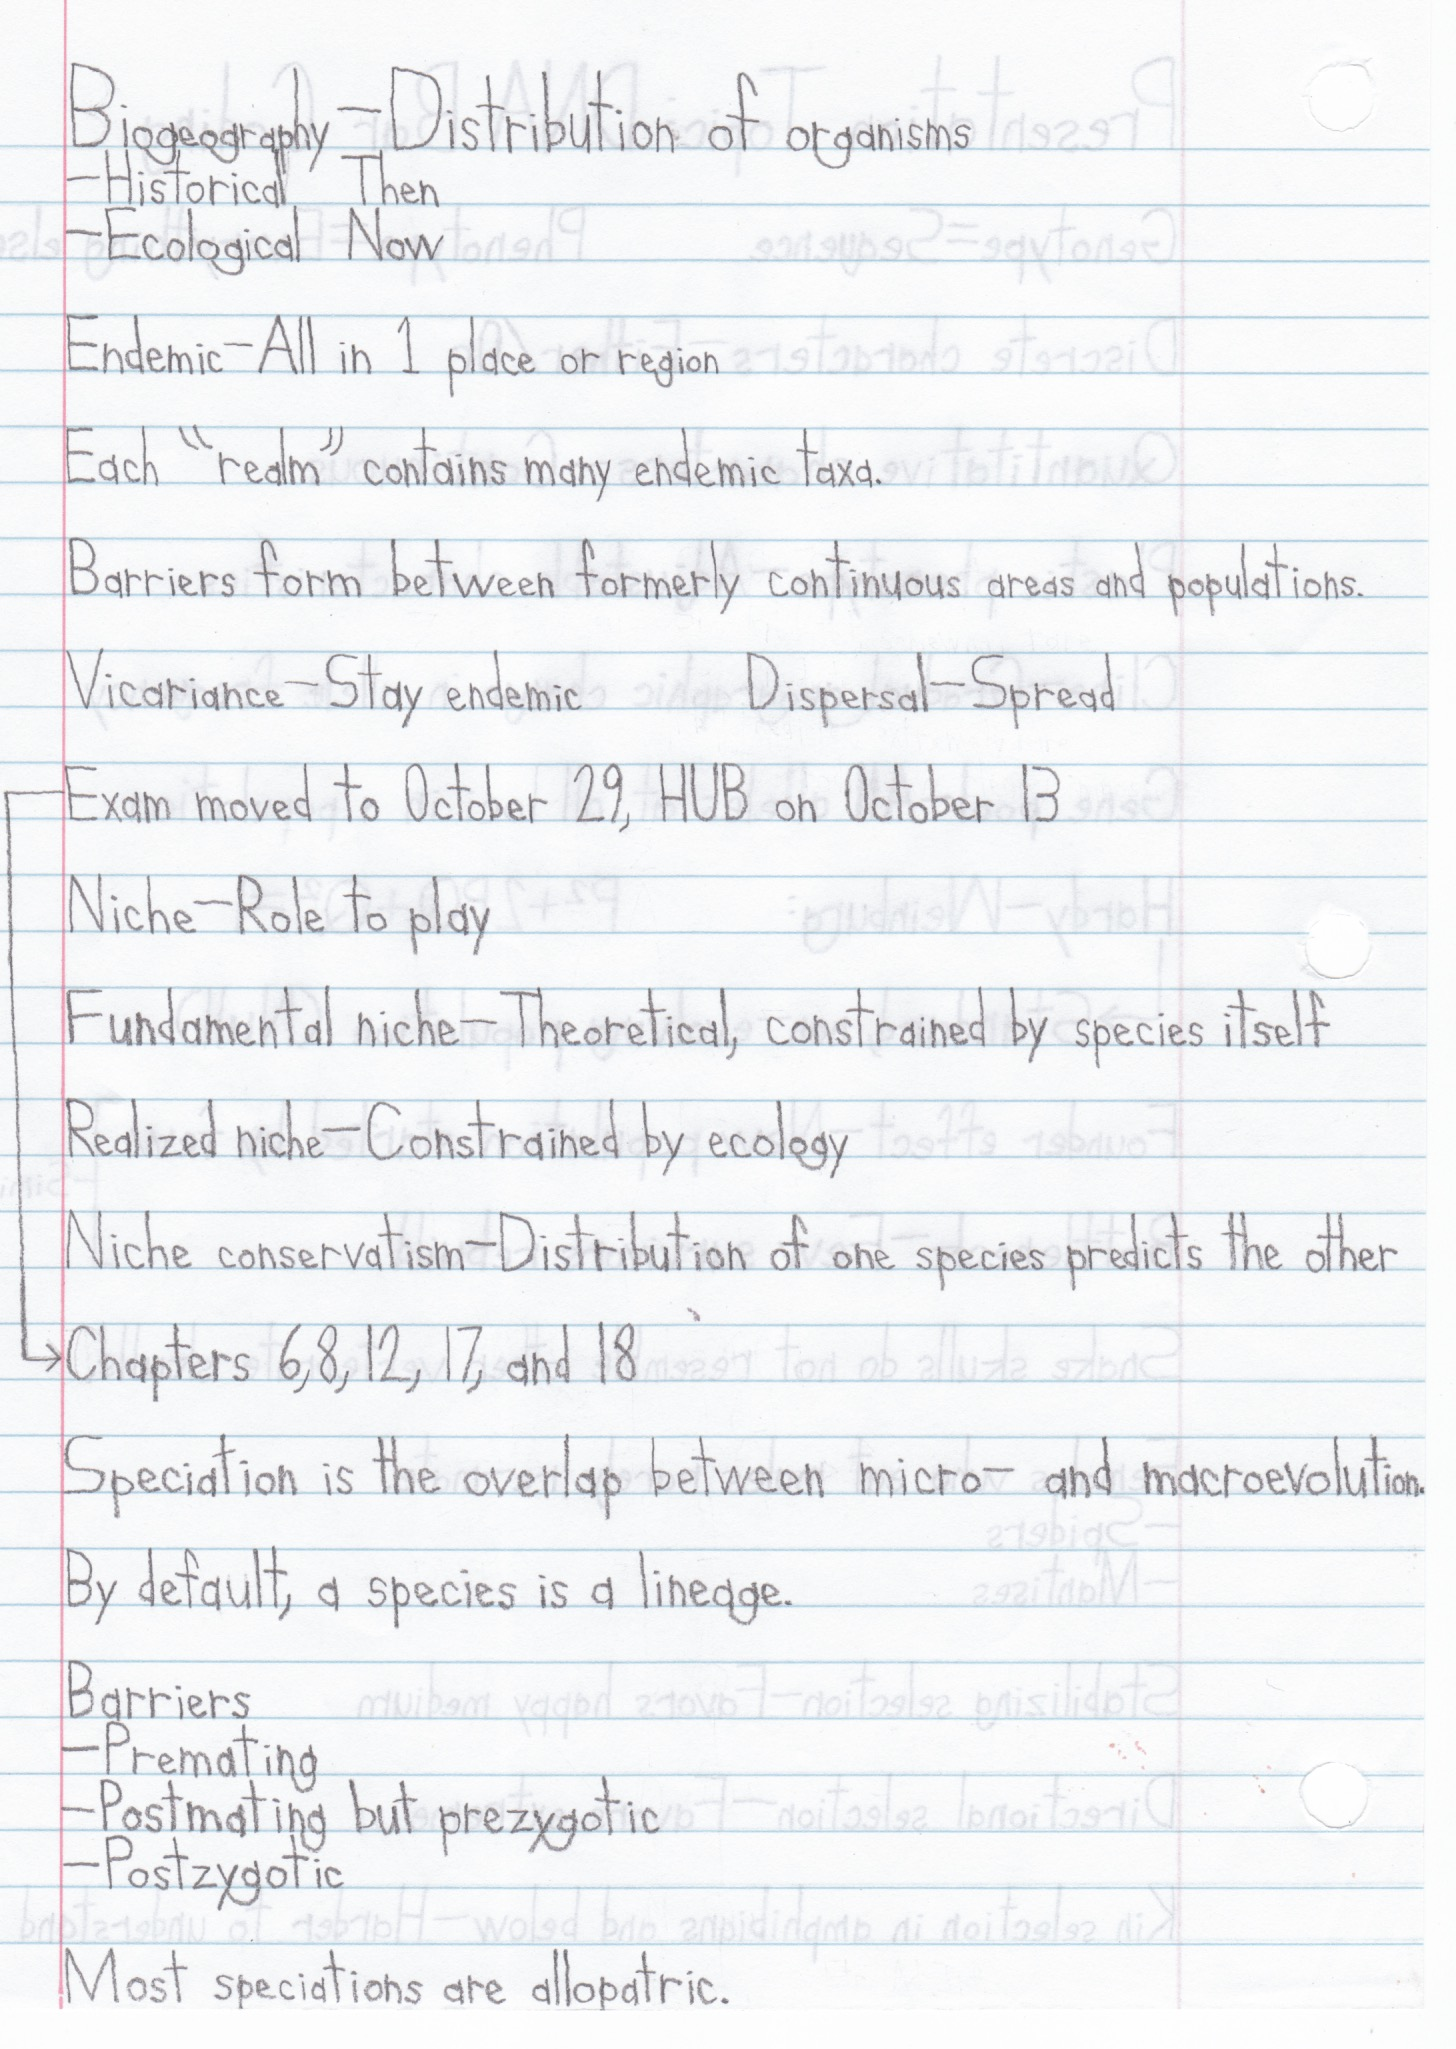 Biogeography—Distribution of organisms
—Historical Then
—Ecological Now
Endemic—All in 1 place or region
Each "realm" contains many endemic taxa.
Barriers form between formerly continuous areas and populations.
Vicariance—Stay endemic Dispersal—Spread
Exam moved to October 29, HUB on October 13
Niche—Role to play
Fundamental niche—Theoretical, constrained by species itself
Realized niche—Constrained by ecology
Niche conservatism—Distribution of one species predicts the other
Chapters 6, 8, 12, 17, and 18
Speciation is the overlap between micro— and macroevolution.
By default, a species is a lineage.
Barriers
—Premating
—Postmating but prezygotic
—Postzygotic
Most speciations are allopatric.